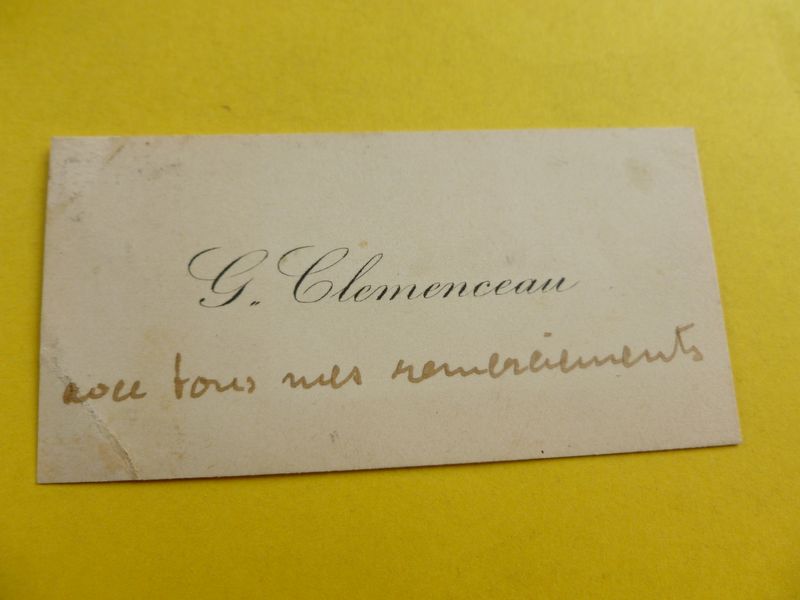 G. Clemenceau
avec tous mes remerciements